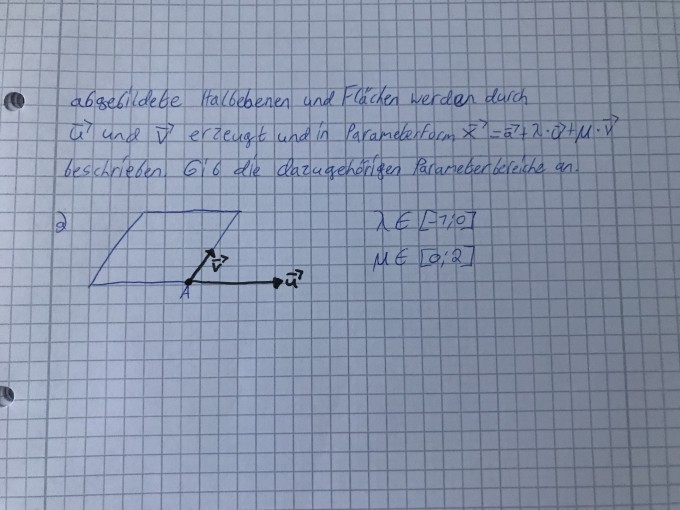 abgebildete Halbebenen und Flächen werden durch
u⃗ und v⃗ erzeugt und in Parameterform x⃗ = a⃗ + λ · u⃗ + μ · v⃗
beschrieben. Gib die dazugehörigen Parameterbereiche an.
a) λ ∈ [-1;0]
μ ∈ [0;2]
v⃗
A u⃗